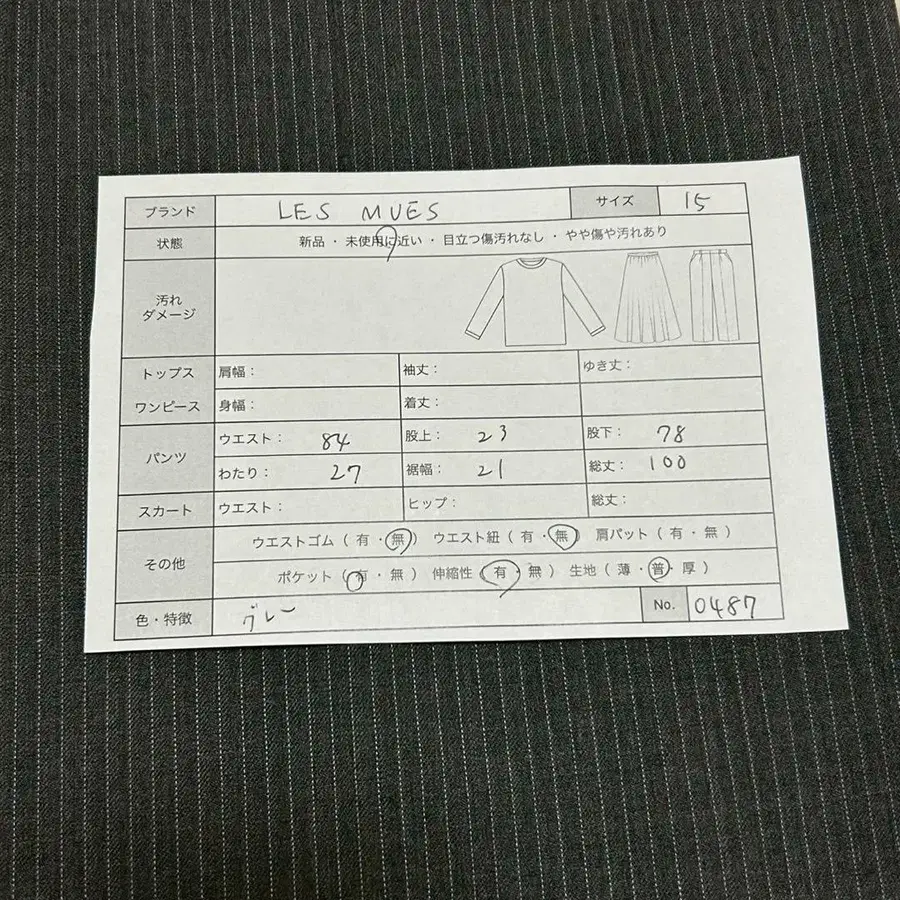 ブランド LES MUES サイズ 15
状態 新品 ・ 未使用に近い ・ 目立つ傷汚れなし ・ やや傷や汚れあり
汚れ
ダメージ
トップス 肩幅： 袖丈： ゆき丈：
ワンピース 身幅： 着丈：
パンツ ウエスト： 84 股上： 23 股下： 78
わたり： 27 裾幅： 21 総丈： 100
スカート ウエスト： ヒップ： 総丈：
その他 ウエストゴム（ 有 ・ 無 ） ウエスト紐（ 有 ・ 無 ） 肩パット（ 有 ・ 無 ）
ポケット（ 有 ・ 無 ） 伸縮性（ 有 ・ 無 ） 生地（ 薄 ・ 普 ・ 厚 ）
色・特徴 グレー No. 0487